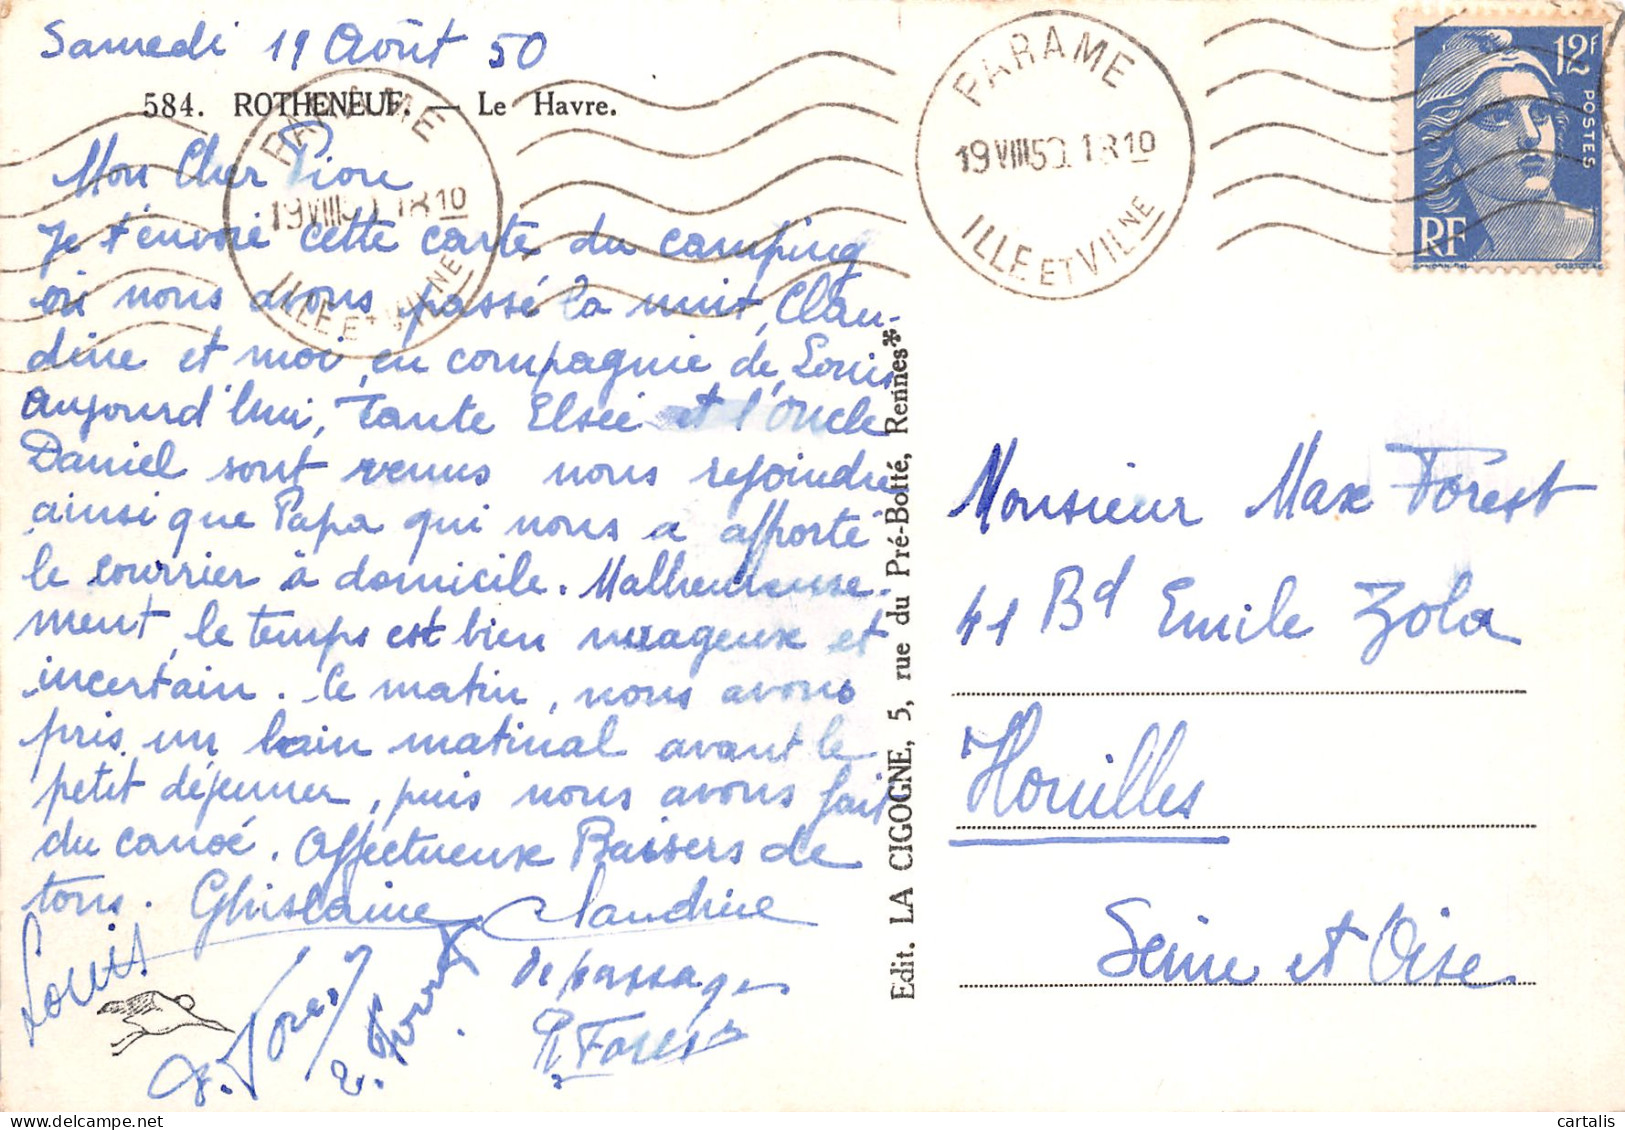 Samedi 19 Août 50
584. ROTHENEUF. — Le Havre.
Mon Cher
Je t'envoie cette carte du camping
où nous avons passé la nuit, Clau-
dine et moi, en compagnie de Louis
Aujourd'hui, Tante Elsée et l'Oncle
Daniel sont venus nous rejoindre
ainsi que Papa qui nous a apporté
le courrier à domicile. Malheureuse-
ment, le temps est bien nuageux et
incertain. Ce matin, nous avons
pris un bain matinal avant le
petit déjeuner, puis nous avons fait
du canoé. Affectueux Baisers de
tous. Ghislaine Claudine
Louis
De passage
Forest
Edit. LA CIGOGNE, 5, rue du Pré-Botté, Rennes*
PARAME
19 VIII 50 18 10
ILLE ET VILNE
PARAME
19 VIII 50 18 10
ILLE ET VILNE
12F
POSTES
RF
Monsieur Max Forest
41 Bd Emile Zola
Houilles
Seine et Oise
cartables